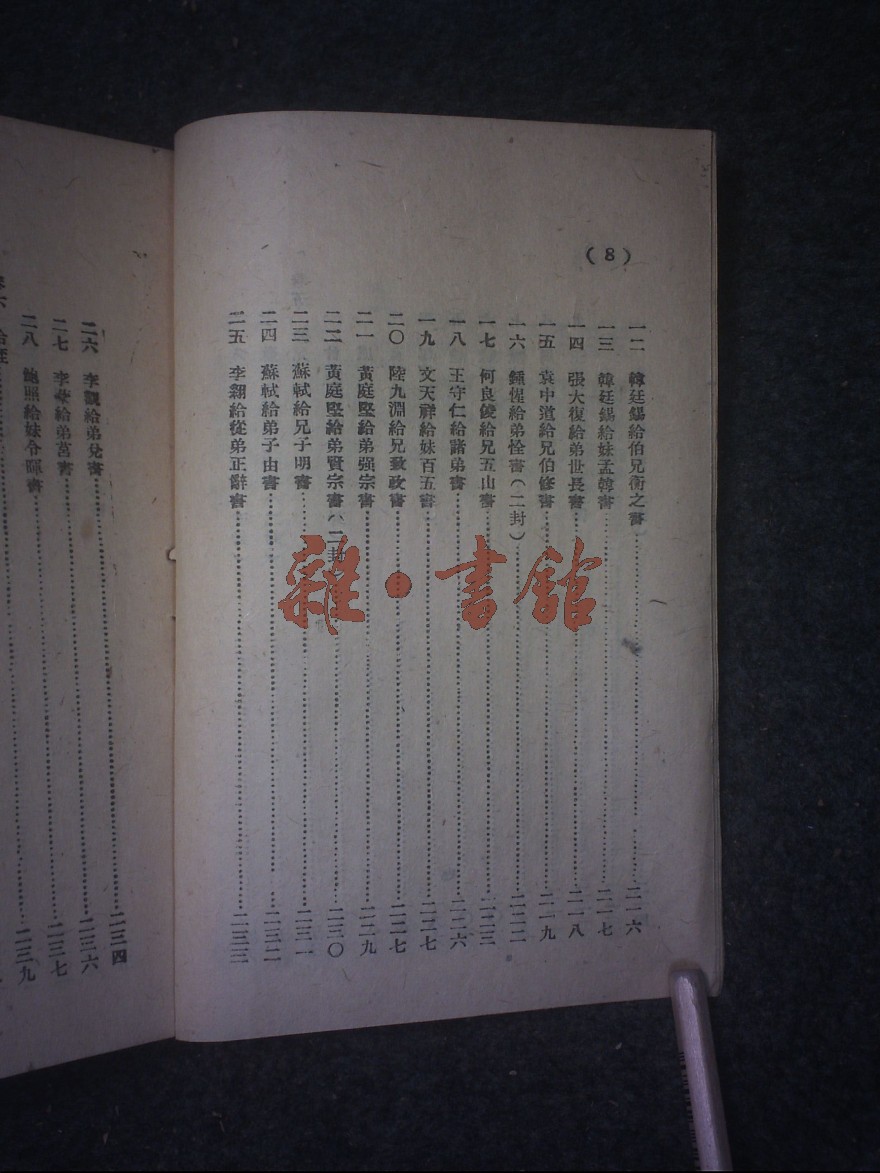 (8)
一二 韓廷錫給伯兄衡之書 二一六
一三 韓廷錫給妹孟韓書 二一七
一四 張大復給弟世長書 二一八
一五 袁中道給兄伯修書 二一九
一六 鍾惺給弟恮書(二封) 二二二
一七 何良俊給兄五山書 二二三
一八 王守仁給諸弟書 二二六
一九 文天祥給妹百五書 二二七
二〇 陸九淵給兄致政書 二二七
二一 黃庭堅給弟强宗書 二二九
二二 黃庭堅給弟賢宗書(二封) 二三〇
二三 蘇軾給兄子明書 二三一
二四 蘇軾給弟子由書 二三二
二五 李翺給從弟正辭書 二三三
二三四
二六 李觀給弟兌書 二三六
二七 給弟莒書 二三七
二八 鮑照給妹令暉書 二三九
雜·書館